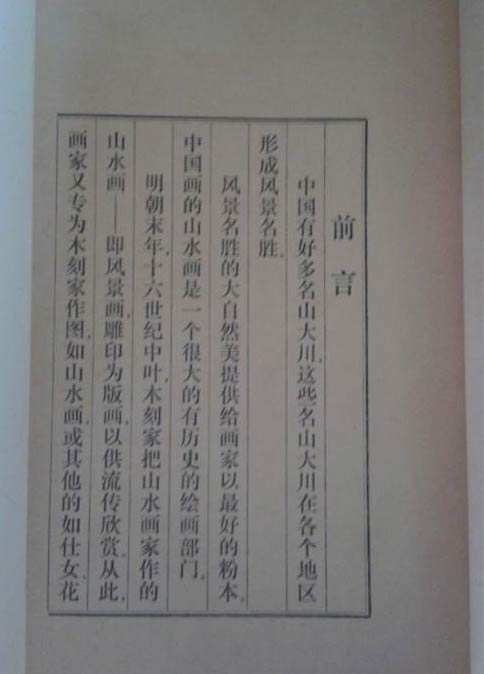 前言
中国有好多名山大川，这些名山大川在各个地区
形成风景名胜。
风景名胜的大自然美提供给画家以最好的粉本。
中国画的山水画是一个很大的有历史的绘画部门。
明朝末年，十六世纪中叶，木刻家把山水画家作的
山水画——即风景画，雕印为版画，以供流传欣赏。从此，
画家又专为木刻家作图，如山水画，或其他的如仕女、花